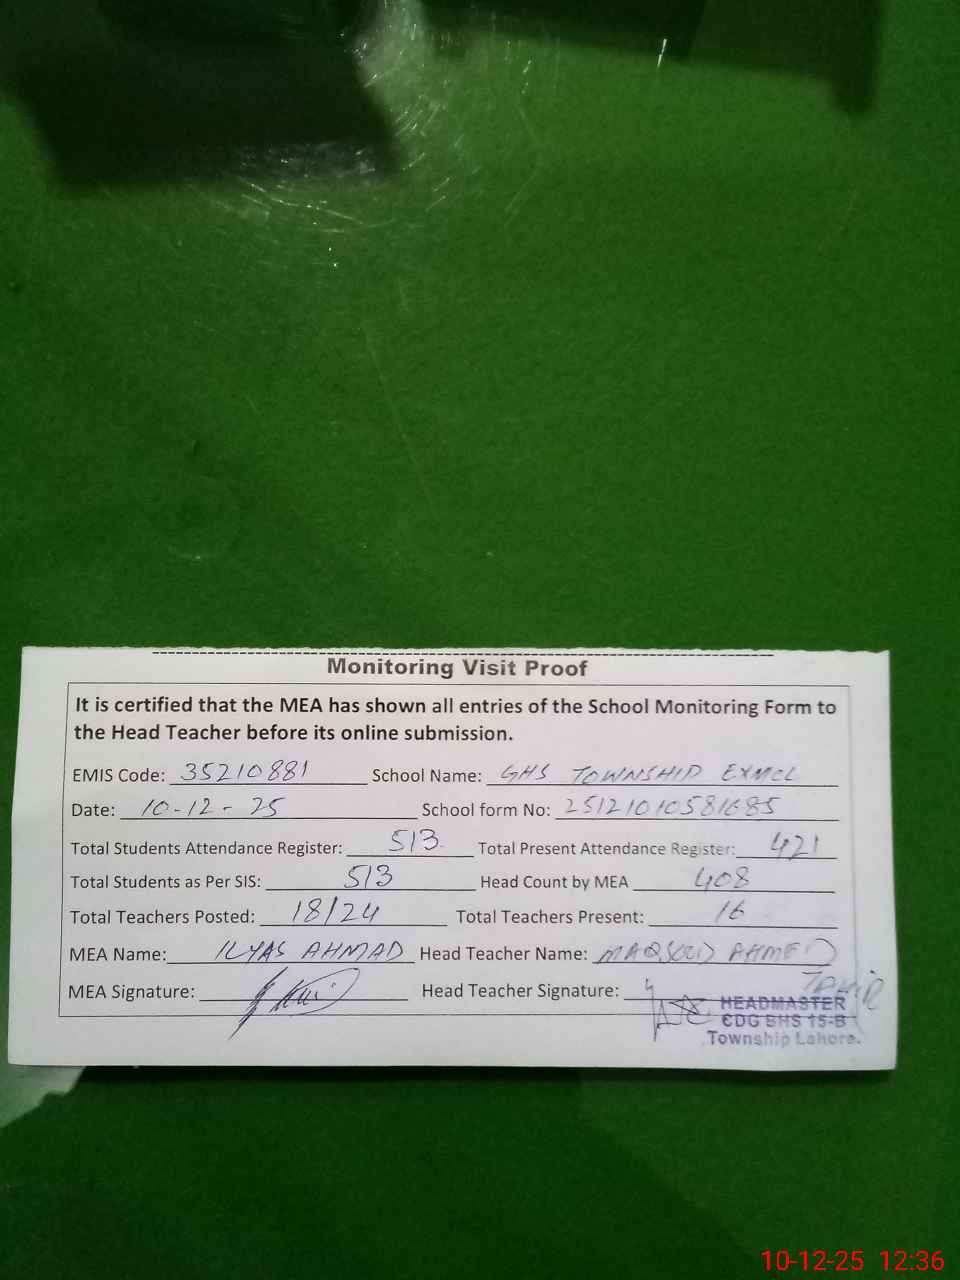 Monitoring Visit Proof
It is certified that the MEA has shown all entries of the School Monitoring Form to
the Head Teacher before its online submission.
EMIS Code: 35210881 School Name: GHS TOWNSHIP EXMCL
Date: 10-12-25 School form No: 25121010581685
Total Students Attendance Register: 513 Total Present Attendance Register: 421
Total Students as Per SIS: 513 Head Count by MEA 408
Total Teachers Posted: 18/24 Total Teachers Present: 16
MEA Name: ILYAS AHMAD Head Teacher Name: MAQSOOD AHMED
TAHIR
MEA Signature: Head Teacher Signature:
HEADMASTER
CDG BHS 15-B
Township Lahore.
10-12-25 12:36